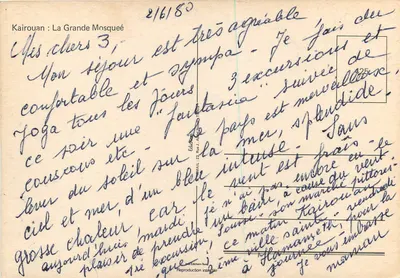 Kairouan : La Grande Mosquée
2/6/80
Mes chers 3,
Mon séjour est très agréable
confortable et sympa. Je fais du
Yoga tous les jours 3 excursions et
ce soir une "fantasia" suivie de
couscous etc. Le pays est merveilleux
lever du soleil sur la mer, splendide.
ciel et mer, d'un bleu intense. Sans
grosse chaleur, car le vent est frais
aujourd'hui, mardi je n'ai pas encore eu le
plaisir de prendre un bain, à cause du vent
excursion, ce matin Kairouan
ville sainte, vendredi
Hammamet, pour la
journée. Je vous embrasse
maman
Reproduction